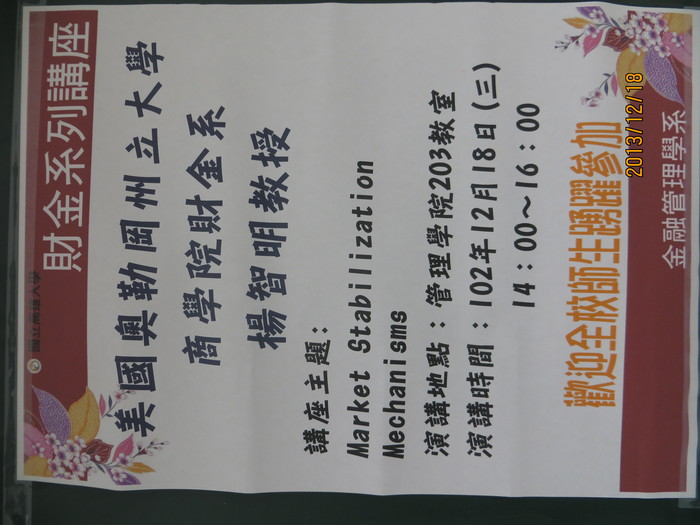 國立高雄大學
財金系列講座
美國奧勒岡州立大學
商學院財金系
楊智明教授
講座主題：
Market Stabilization
Mechanisms
演講地點：管理學院203教室
演講時間：102年12月18日(三)
14：00～16：00
歡迎全校師生踴躍參加
金融管理學系
2013/12/18